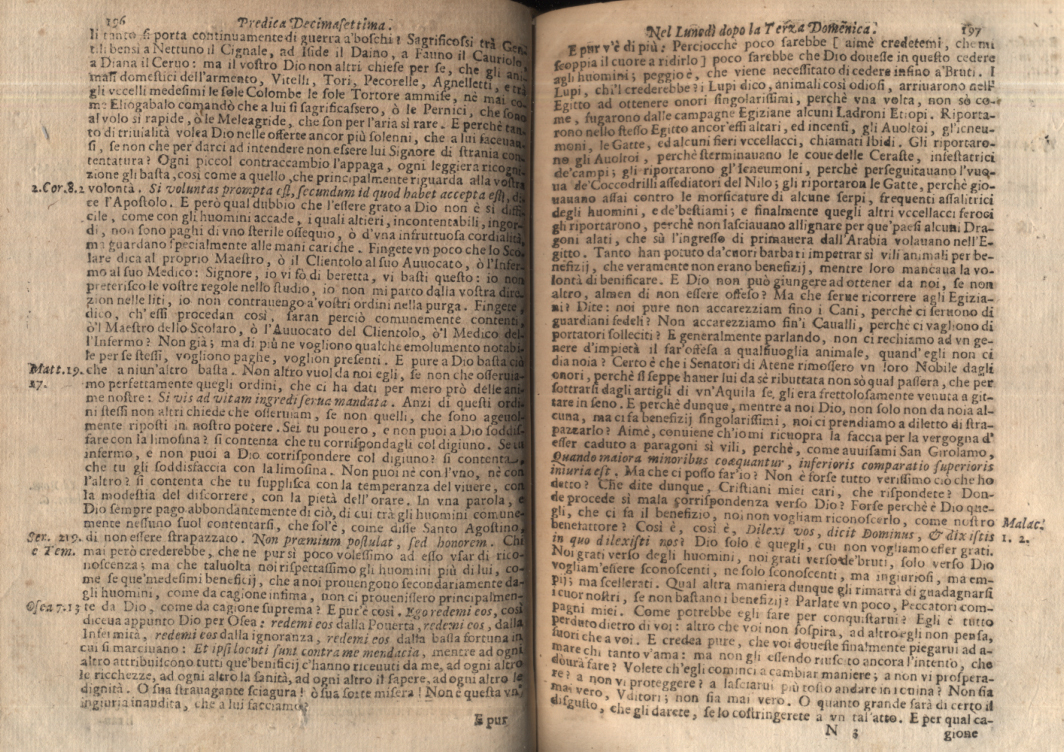 156
Predica Decimasettima.
li tanto si porta continuamente di guerra a'boschi? Sagrificossi trà Gen-
tili bensi a Nettuno il Cignale, ad Iside il Daino, a Fauno il Cauriolo,
a Diana il Ceruo: ma il vostro Dio non altri chiese per se, che gli ani-
mali domestici dell'armento, Vitelli, Tori, Pecorelle, Agnelletti, e trà
gli vccelli medesimi le sole Colombe le sole Tortore ammise, nè mai co-
me Eliogabalo comandò che a lui si sagrificassero, ò le Pernici, che sono
al volo si rapide, ò le Meleagride, che son per l'aria si rare. E perchè tan-
to di triuialità volea Dio nelle offerte ancor più solenni, che a lui faceuan-
si, se non che per darci ad intendere non essere lui Signore di strania con-
tentatura? Ogni piccol contraccambio l'appaga, ogni leggiera ricogni-
zione gli basta, così come a quello, che principalmente riguarda alla vostra
2. Cor. 8. 2 volontà. Si voluntas prompta est, secundum id quod habet accepta est, di-
ce l'Apostolo. E però qual dubbio che l'essere grato a Dio non è si diffi-
cile, come con gli huomini accade, i quali altieri, incontentabili, ingor-
di, non sono paghi di vno sterile ossequio, ò d'vna infruttuosa cordialità,
ma guardano specialmente alle mani cariche. Fingete vn poco che lo Sco-
lare dica al proprio Maestro, ò il Clientolo al suo Auuocato, ò l'Infer-
mo al suo Medico: Signore, io vi fò di beretta, vi basti questo: io non
preterisco le vostre regole nello studio, io non mi parto dalla vostra dire-
zion nelle liti, io non contrauengo a'vostri ordini nella purga. Fingete,
dico, ch'essi procedan così, saran perciò comunemente contenti,
ò'l Maestro dello Scolaro, ò l'Auuocato del Clientolo, ò'l Medico del-
l'Infermo? Non già; ma di più ne vogliono qualche emolumento notabi-
le per se stessi, vogliono paghe, voglion presenti. E pure a Dio basta ciò
Matt. 19. che a niun'altro basta. Non altro vuol da noi egli, se non che osseruia-
17. mo perfettamente quegli ordini, che ci ha dati per mero prò delle ani-
me nostre: Si vis ad vitam ingredi serua mandata. Anzi di questi ordi-
ni stessi non altri chiede che osseruiam, se non quelli, che sono ageuol-
mente riposti in nostro potere. Sei tu pouero, e non puoi a Dio soddis-
fare con la limosina? si contenta che tu corrispondagli col digiuno. Se tu
infermo, e non puoi a Dio corrispondere col digiuno? si contenta,
che tu gli soddisfaccia con la limosina. Non puoi nè con l'vno, nè con
l'altro? si contenta che tu supplisca con la temperanza del viuere, con
la modestia del discorrere, con la pietà dell'orare. In vna parola, è
Dio sempre pago abbondantemente di ciò, di cui trà gli huomini comune-
mente nessuno suol contentarsi, che sol'è, come disse Santo Agostino,
Ser. 219. di non essere strapazzato. Non præmium postulat, sed honorem. Chi
e Tem. mai però crederebbe, che ne pur sì poco volessimo ad esso vsar di rico-
noscenza; ma che taluolta noi rispettassimo gli huomini più di lui, co-
me se que'medesimi beneficij, che a noi prouengono secondariamente da-
gli huomini, come da cagione infima, non ci prouenissero principalmen-
Osea 7. 13 te da Dio, come da cagione suprema? E pur'è così. Ego redemi eos, così
diceua appunto Dio per Osea: redemi eos dalla Pouertà, redemi eos, dalla
Infermità, redemi eos dalla ignoranza, redemi eos dalla bassa fortuna in
cui si marciuano: Et ipsi locuti sunt contra me mendacia, mentre ad ogni
altro attribuiscono tutti que'beneficij c'hanno riceuuti da me, ad ogni altro
le ricchezze, ad ogni altro la sanità, ad ogni altro il sapere, ad ogni altro le
dignità. O sua strauagante sciagura! ò sua sorte misera! Non è questa vn'
ingiuria inaudita, che a lui facciamo?
E pur
Nel Lunedì dopo la Terza Domenica.
197
E pur v'è di più: Perciocchè poco sarebbe [ aimè credetemi, che mi
scoppia il cuore a ridirlo] poco sarebbe che Dio douesse in questo cedere
agli huomini; peggio è, che viene necessitato di cedere insino a'Bruti. I
Lupi, chi'l crederebbe? i Lupi dico, animali così odiosi, arriuarono nell'
Egitto ad ottenere onori singolarissimi, perchè vna volta, non sò co-
me, fugarono dalle campagne Egiziane alcuni Ladroni Etiopi. Riporta-
rono nello stesso Egitto ancor'essi altari, ed incensi, gli Auoltoi, gl'icneu-
moni, le Gatte, ed alcuni fieri vccellacci, chiamati Ibidi. Gli riportaro-
no gli Auoltoi, perchè sterminauano le coue delle Ceraste, infestatrici
de'campi; gli riportarono gl'Icneumoni, perchè perseguitauano l'vuo-
ua de'Coccodrilli assediatori del Nilo; gli riportaron le Gatte, perchè gio-
uauano assai contro le morsicature di alcune serpi, frequenti assalitrici
degli huomini, e de'bestiami; e finalmente quegli altri vccellacci feroci
gli riportarono, perchè non lasciauano allignare per que'paesi alcuni Dra-
goni alati, che sù l'ingresso di primauera dall'Arabia volauano nell'E-
gitto. Tanto han potuto da'cuori barbari impetrar si vili animali per be-
nefizij, che veramente non erano benefizij, mentre loro mancaua la vo-
lontà di benificare. E Dio non può giungere ad ottener da noi, se non
altro, almen di non essere offeso? Ma che serue ricorrere agli Egizia-
ni? Dite: noi pure non accarezziam fino i Cani, perchè ci seruono di
guardiani fedeli? Non accarezziamo fin'i Caualli, perchè ci vagliono di
portatori solleciti? E generalmente parlando, non ci rechiamo ad vn ge-
nere d'impietà il far'offesa a qualsiuoglia animale, quand'egli non ci
dia noia? Certo è che i Senatori di Atene rimossero vn loro Nobile dagli
onori, perchè si seppe hauer lui da sè ributtata non sò qual passera, che per
sottrarsi dagli artigli di vn'Aquila se, gli era frettolosamente venuta a git-
tare in seno. E perchè dunque, mentre a noi Dio, non solo non da noia al-
cuna, ma ci fa benefizij singolarissimi, noi ci prendiamo a diletto di stra-
pazzarlo? Aimè, conuiene ch'io mi ricuopra la faccia per la vergogna d'
esser caduto a paragoni si vili, perchè, come auuisami San Girolamo,
Quando maiora minoribus coæquantur, inferioris comparatio superioris
iniuria est, Ma che ci posso far'io? Non è forse tutto verissimo ciò che ho
detto? Che dite dunque, Cristiani miei cari, che rispondete? Don-
de procede si mala corrispondenza verso Dio? Forse perchè è Dio que-
gli, che ci fa il benefizio, noi non vogliam riconoscerlo, come nostro
benefattore? Così è, così è, Dilexi vos, dicit Dominus, & dixistis Malac.
in quo dilexisti nos? Dio solo è quegli, cui non vogliamo esser grati. 1. 2.
Noi grati verso degli huomini, noi grati verso de'bruti, solo verso Dio
vogliam'essere sconoscenti, ne solo sconoscenti, ma ingiuriosi, ma em-
pij; ma scellerati. Qual altra maniera dunque gli rimarrà di guadagnarsi
i cuor nostri, se non bastano i benefizij? Parlate vn poco, Peccatori com-
pagni miei. Come potrebbe egli fare per conquistarui? Egli è tutto
perduto dietro di voi: altro che voi non sospira, ad altro egli non pensa,
fuori che a voi. E credea pure, che voi doueste finalmente piegarui ad a-
mare chi tanto v'ama: ma non gli essendo riuscito ancora l'intento, che
dourà fare? Volete ch'egli cominci a cambiar maniere; a non vi prospera-
re? a non vi proteggere? a lasciarui più tosto andare in rouina? Non sia
mai vero, Vditori; non sia mai vero. O quanto grande sarà di certo il
disgusto, che gli darete, se lo costringerete a vn tal'atto. E per qual ca-
N 3
gione